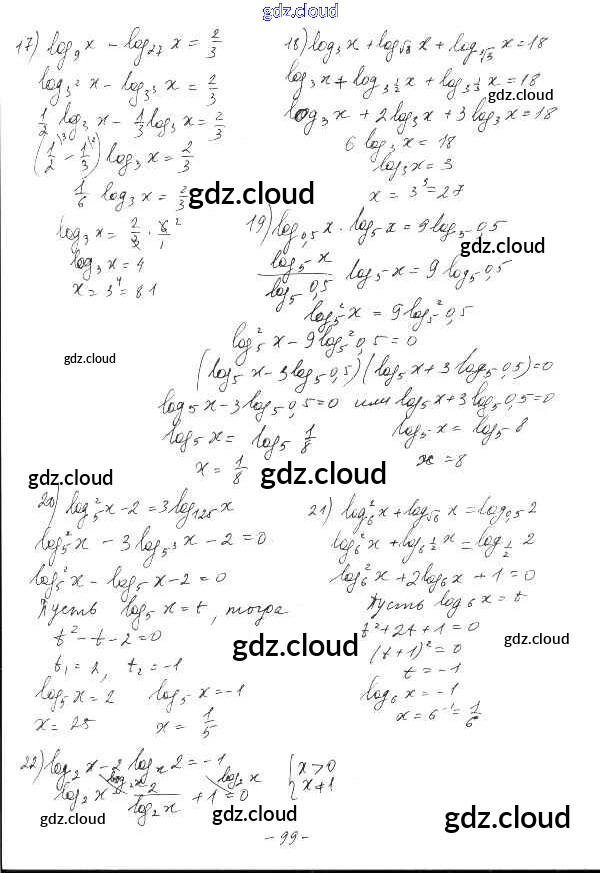 gdz.cloud
17) log₉x − log₂₇x = 2/3
log₃²x − log₃³x = 2/3
1/2 log₃x − 1/3 log₃x = 2/3
(1/2 − 1/3) log₃x = 2/3
1/6 log₃x = 2/3
gdz.cloud
log₃x = 2/3 · 6/1
log₃x = 4
x = 3⁴ = 81
gdz.cloud
18) log₃x + log_√3 x + log_∛3 x = 18
log₃x + log_3^(1/2) x + log_3^(1/3) x = 18
gdz.cloud
log₃x + 2log₃x + 3log₃x = 18
6 log₃x = 18
log₃x = 3
gdz.cloud
x = 3³ = 27
19) log₀,₅x · log₅x = 9log₅0,5
gdz.cloud
log₅x / log₅0,5 · log₅x = 9 log₅0,5
log₅²x = 9log₅²0,5
log₅²x − 9log₅²0,5 = 0
(log₅x − 3log₅0,5)(log₅x + 3log₅0,5) = 0
log₅x − 3log₅0,5 = 0 или log₅x + 3log₅0,5 = 0
log₅x = log₅1/8 log₅x = log₅8
x = 1/8 x = 8
gdz.cloud
gdz.cloud
gdz.cloud
20) log₅²x − 2 = 3log₁₂₅x
log₅²x − 3log₅³x − 2 = 0
log₅²x − log₅x − 2 = 0
Пусть log₅x = t, тогда
t² − t − 2 = 0
t₁ = 2, t₂ = −1
log₅x = 2 log₅x = −1
x = 25 x = 1/5
gdz.cloud
21) log₆²x + log_√6 x = log₀,₅2
log₆²x + log_6^(1/2) x = log_(1/2) 2
log₆²x + 2log₆x + 1 = 0
gdz.cloud
Пусть log₆x = t
t² + 2t + 1 = 0
(t + 1)² = 0
gdz.cloud
t = −1
log₆x = −1
x = 6⁻¹ = 1/6
22) log₂x − 2logₓ2 = −1
log₂x − 2/log₂x + 1 = 0
log₂x log₂x
{x > 0
x ≠ 1
gdz.cloud
gdz.cloud
gdz.cloud
- 99 -